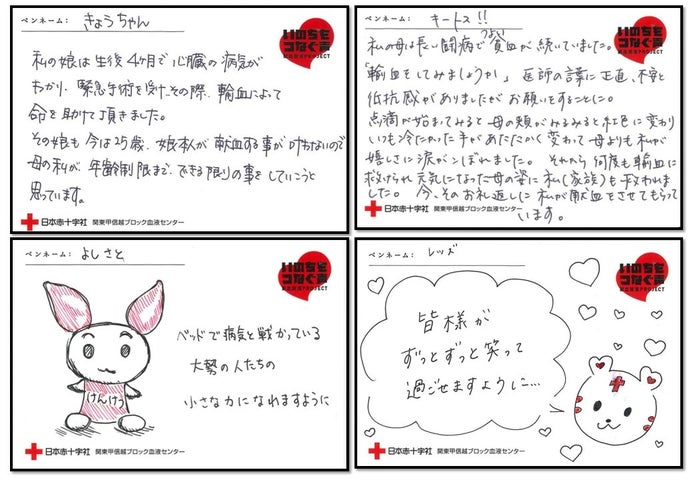 ペンネーム： きょうちゃん
いのちを
つなぐ声
献血推進PROJECT
私の娘は生後4ヶ月で心臓の病気が
わかり、緊急手術を受け、その際、輸血によって
命を助けて頂きました。
その娘も今は25歳、娘本人が献血する事が叶わないので
母の私が、年齢制限まで、できる限りの事をしていこうと
思っています。
日本赤十字社 関東甲信越ブロック血液センター
ペンネーム： キートス!!
いのちを
つなぐ声
献血推進PROJECT
私の母は長い闘病でつよい貧血が続いていました。
「輸血をしてみましょうか」 医師の言葉に正直、不安と
抵抗感がありましたがお願いをすることに。
点滴が始まってみると母の頬がみるみると紅色に変わり
いつも冷たかった手があたたかく変わって母よりも私が
嬉しさに涙がこぼれました。 それから何度も輸血に
救けられ元気になった母の姿に私(家族)も救われま
した。 今、そのお礼返しに私が献血をさせてもらって
います。
日本赤十字社 関東甲信越ブロック血液センター
ペンネーム： よしさと
いのちを
つなぐ声
献血推進PROJECT
けんけつ
ベッドで病気と戦かっている
大勢の人たちの
小さな力になれますように
日本赤十字社 関東甲信越ブロック血液センター
ペンネーム： レッズ
いのちを
つなぐ声
献血推進PROJECT
皆様が
ずっとずっと笑って
過ごせますように…
日本赤十字社 関東甲信越ブロック血液センター